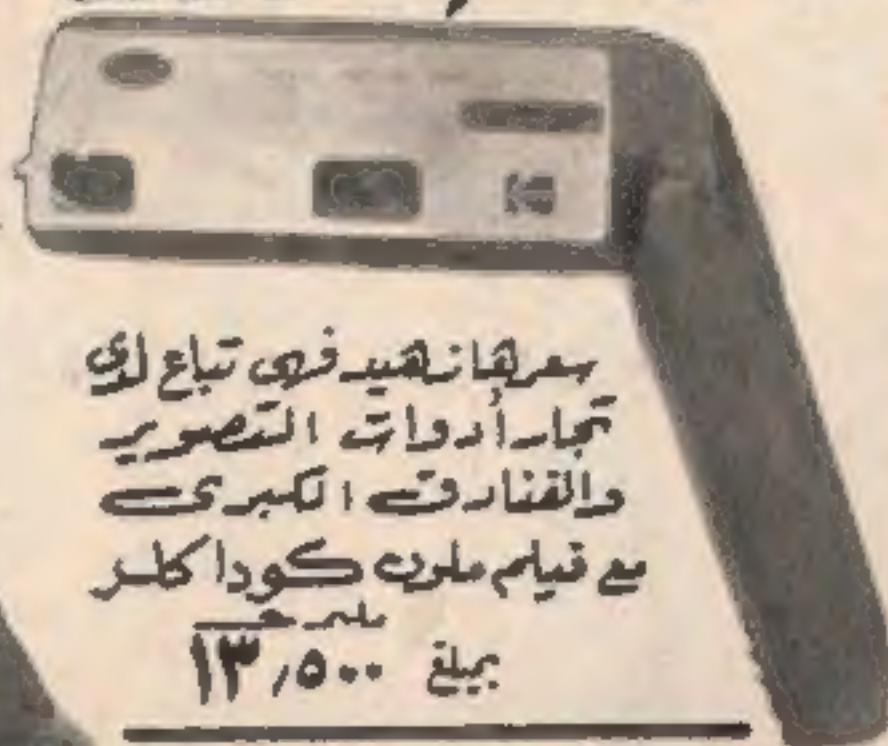 سعرها زهيد فهى تباع لدى
تجار أدوات التصوير
والفنادق الكبرى
مع فيلم ملون كوداكلر
مليم جـ
بمبلغ ١٣,٥٠٠